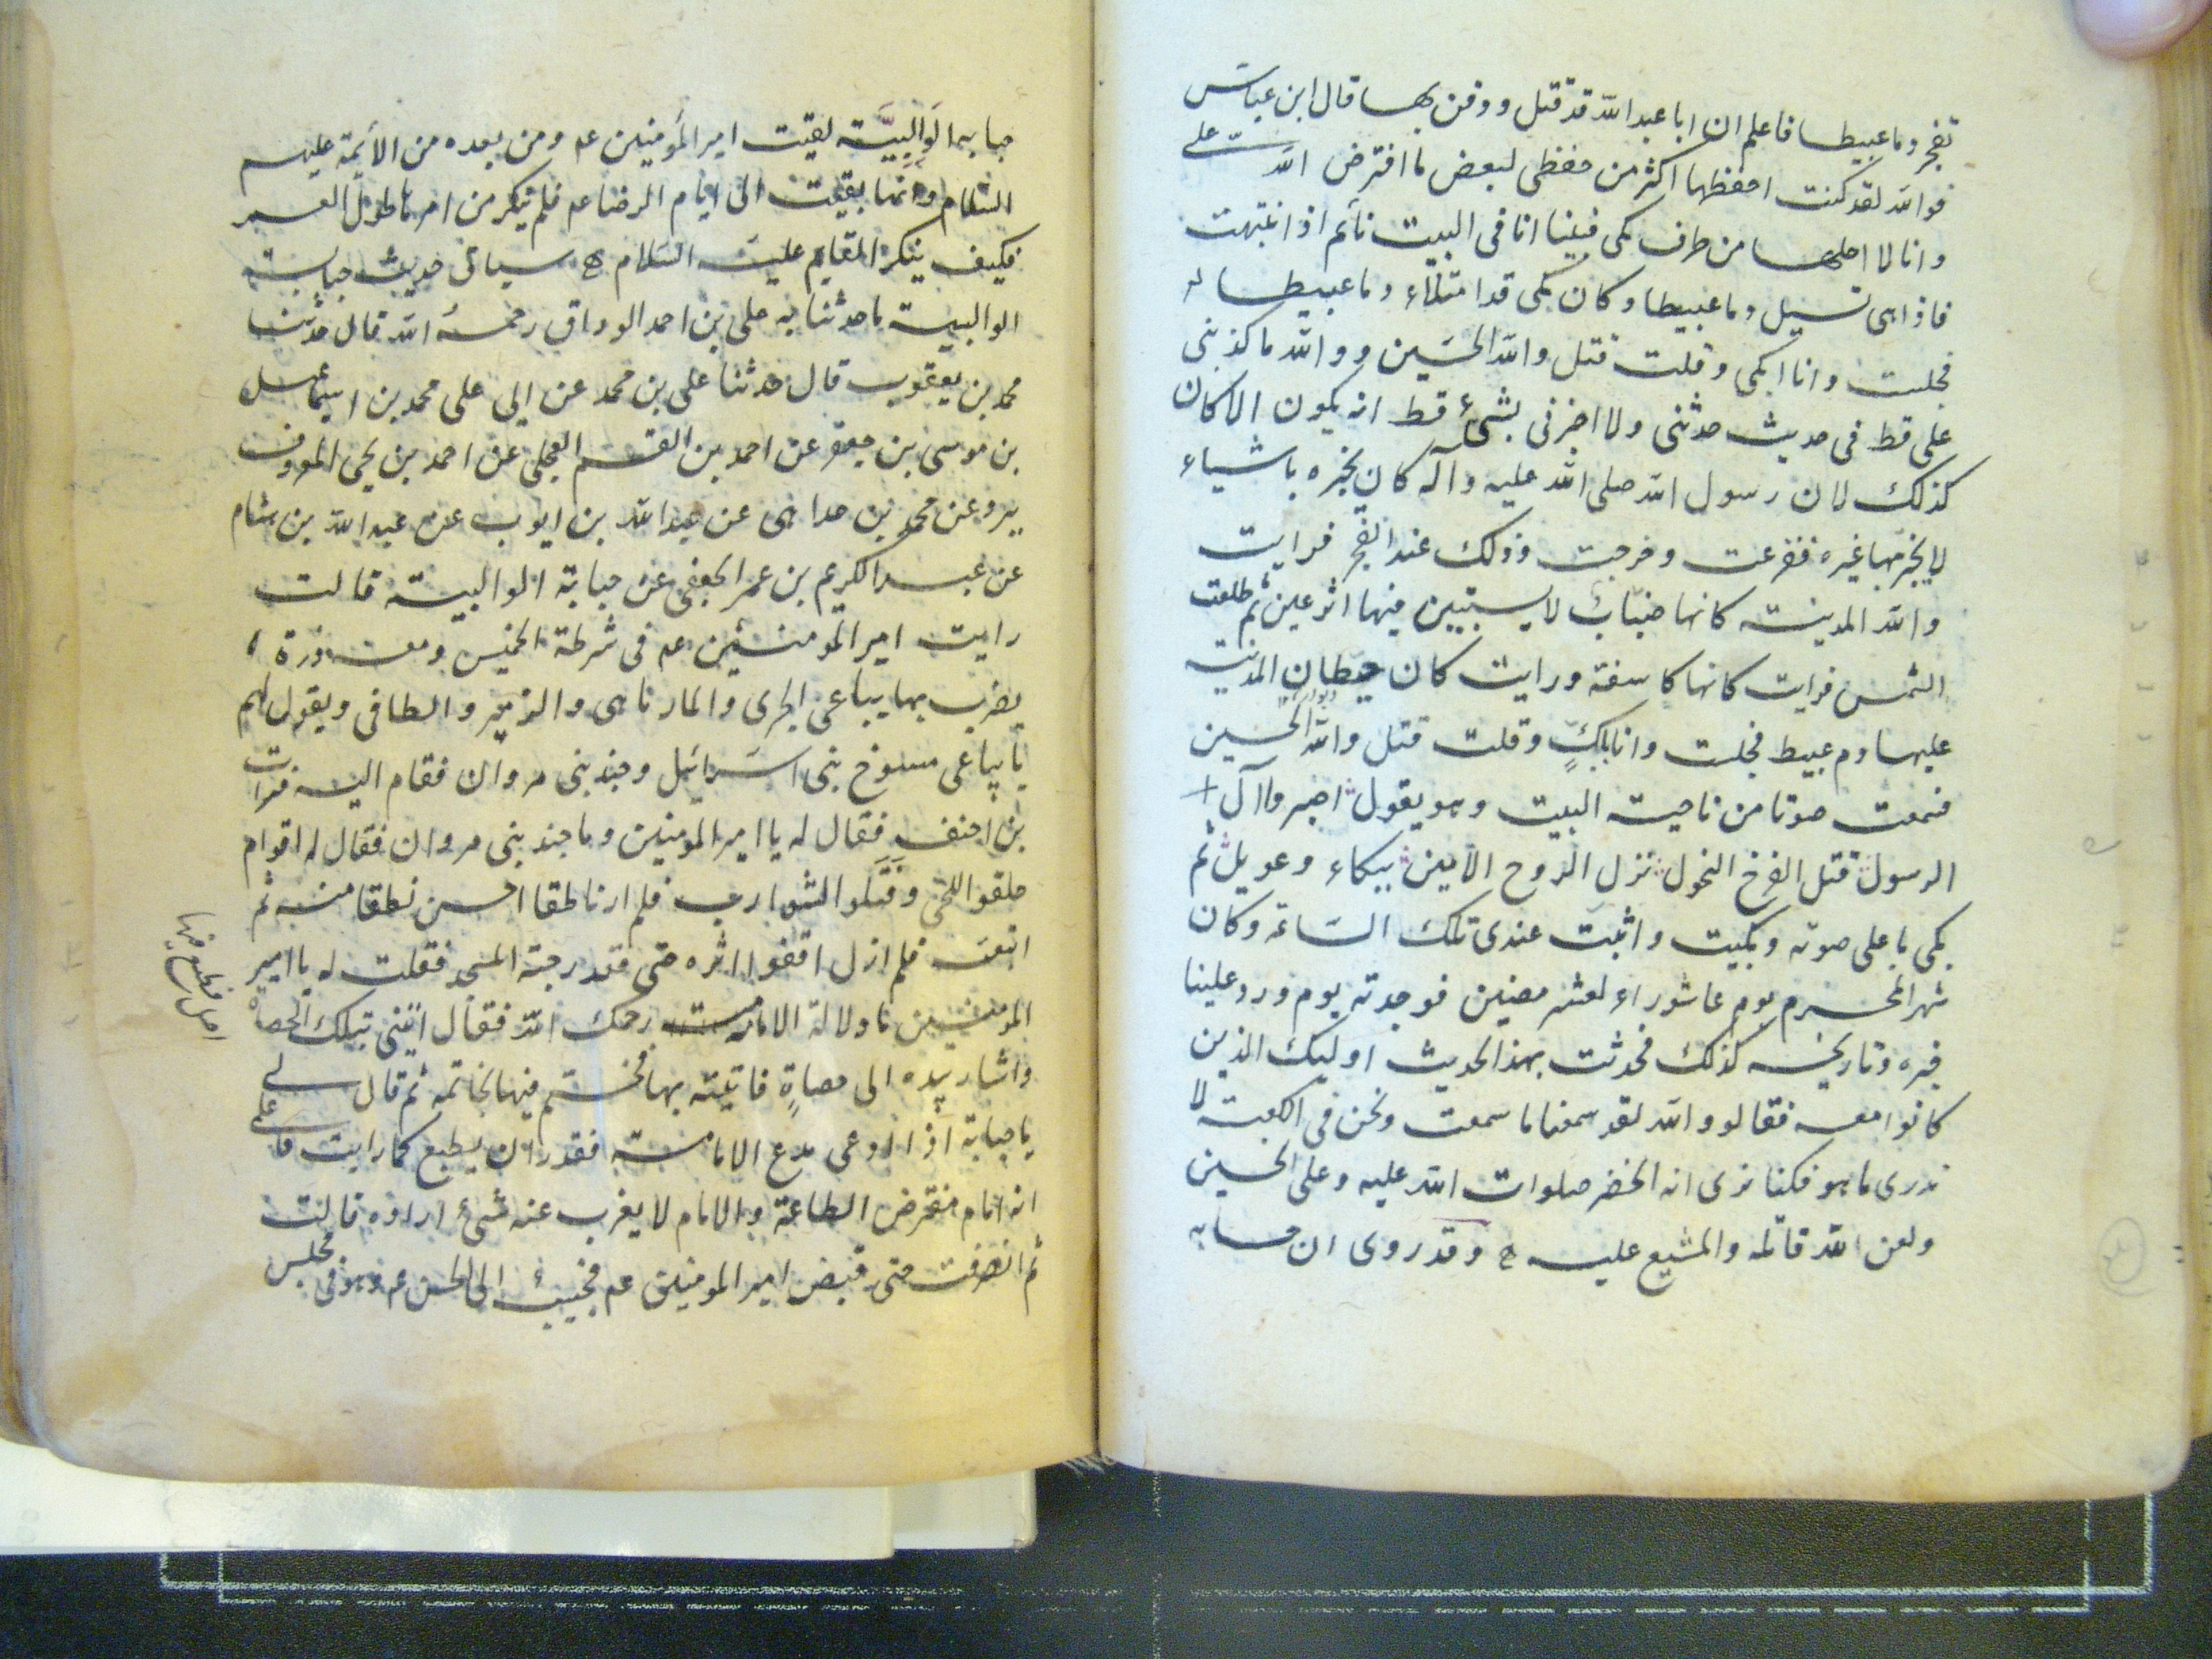 تفجر دما عبيطا فاعلم ان ابا عبد الله قد قتل ودفن بها قال ابن عباس
فوالله لقد كنت احفظها اكثر من حفظى لبعض ما افترض الله على
وانا لا احلها من طرف كمى فبينا انا فى البيت نائم اذ انتبهت
فاذا هى تسيل دما عبيطا وكان كمى قد امتلاء دما عبيطا
فجلست وانا ابكى وقلت قتل والله الحسين ووالله ما كذبنى
على قط فى حديث حدثنى ولا اخبرنى بشئ قط انه يكون الا كان
كذلك لان رسول الله صلى الله عليه وآله كان يخبره باشياء
لا يخبر بها غيره ففزعت وخرجت وذلك عند الفجر فرايت
والله المدينة كانها ضباب لا يستبين فيها اثر عين ثم طلعت
الشمس فرايت كانها كاسفة ورايت كان حيطان المدينة
عليها دم عبيط فجلست وانا باكٍ وقلت قتل والله الحسين
فسمعت صوتا من ناحية البيت وهو يقول اصبروا آل
الرسول قتل الفرخ النحول نزل الروح الامين ببكاء وعويل ثم
بكى باعلى صوته وبكيت واثبت عندى تلك الساعة وكان
شهر المحرم يوم عاشوراء لعشر مضين فوجدته يوم ورد علينا
خبره وتاريخه كذلك فحدثت بهذا الحديث اوليك الذين
كانوا معه فقالو والله لقد سمعنا ما سمعت ونحن فى الكعبة لا
ندرى ما هو فكنا نرى انه الخضر صلوات الله عليه وعلى الحسين
ولعن الله قاتله والمشيع عليه وقد روى ان حبابه
حبابه الوالبيَّة لقيت امير المؤمنين عم ومن بعده من الأئمة عليهم
السلام وانها بقيت الى ايام الرضا عم فلم ينكر من امرها طول العمر
فكيف ينكر القايم عليه السلام سياق حديث حبابة
الوالبية ما حدثنا به على بن احمد الوراق رحمه الله قال حدثنا
محمد بن يعقوب قال حدثنا على بن محمد عن ابى على محمد بن اسماعيل
بن موسى بن جعفر عن احمد بن القسم العجلى عن احمد بن يحيى المعروف
ببرد عن محمد بن خداهى عن عبد الله بن ايوب عن عبد الله بن هشام
عن عبد الكريم بن عمر الجعفى عن حبابة الوالبية قالت
رايت امير المومنين عم فى شرطة الخميس ومعه درة
يضرب بها بياعى الجرى والمارماهى والزمير والطافى ويقول لهم
يا بياعى مسوخ بنى اسرائيل وجند بنى مروان فقام اليه فرات
بن احنف فقال له يا امير المومنين وما جند بنى مروان فقال له اقوام
حلقوا اللحى وفتلو الشوارب فلم ار ناطقا احسن نطقا منه ثم
اتبعته فلم ازل اقفوا اثره حتى قعد رحبة المسجد فقلت له يا امير
المومنين ما دلالة الامامة رحمك الله فقال ايتنى بتلك الحصاة
واشار بيده الى حصاةٍ فاتيته بها فختم فيها بخاتمه ثم قال لى
يا حبابة اذا ادعى مدع الامامة فقدر ان يطبع كما رايت فاعلمى
انه امام مفترض الطاعة والامام لا يغرب عنه شئ اراده قالت
ثم انصرفت حتى قبض امير المومنين عم فجيت الى الحسن عم وهو فى مجلس
اصل فطبع فيها